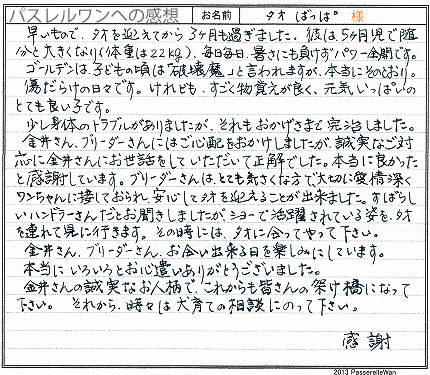 パスレルワンへの感想 お名前 タオ ぱっぱ 様
早いもので、タオを迎えてから3ヶ月も過ぎました。彼は、5ヶ月児で随
分と大きくなり（体重は22kg）、毎日毎日、暑さにも負けずパワー全開です。
ゴールデンは、子どもの頃は「破壊魔」と言われますが、本当にそのとおり。
傷だらけの日々です。けれども、すごく物覚えが良く、元気いっぱいの
とても良い子です。
少し身体のトラブルがありましたが、それもおかげさまで完治しました。
金井さん、ブリーダーさんにはご心配をおかけしましたが、誠実なご対
応に金井さんにお世話をしていただいて正解でした。本当に良かった
と感謝しています。ブリーダーさんは、とても気さくな方で大切に愛情深く
ワンちゃんに接しておられ、安心してタオを迎えることが出来ました。すばらし
いハンドラーさんだとお聞きしましたが、ショーで活躍されている姿を、タオ
を連れて見に行きます。その時には、タオに会ってやって下さい。
金井さん、ブリーダーさん、お会い出来る日を楽しみにしています。
本当にいろいろとお心遣いありがとうございました。
金井さんの誠実なお人柄で、これからも皆さんの架け橋になって
下さい。それから、時々は犬育ての相談にのって下さい。
感謝
2013 PasserelleWan